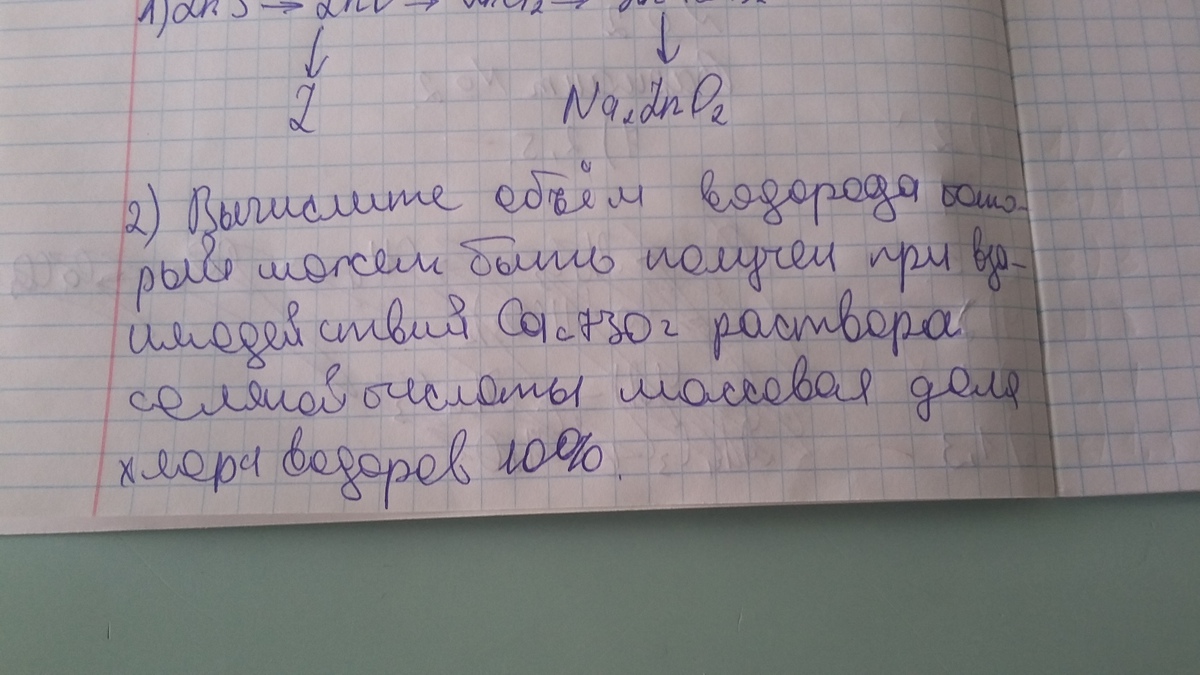 1) ZnS →
↓ ↓
Z Na₂ZnO₂
2) Вычислите объём водорода кото-
рый может быть получен при вза-
имодействий Ca с 730 г раствора
соляной кислоты массовая доля
хлора водоров 10%.